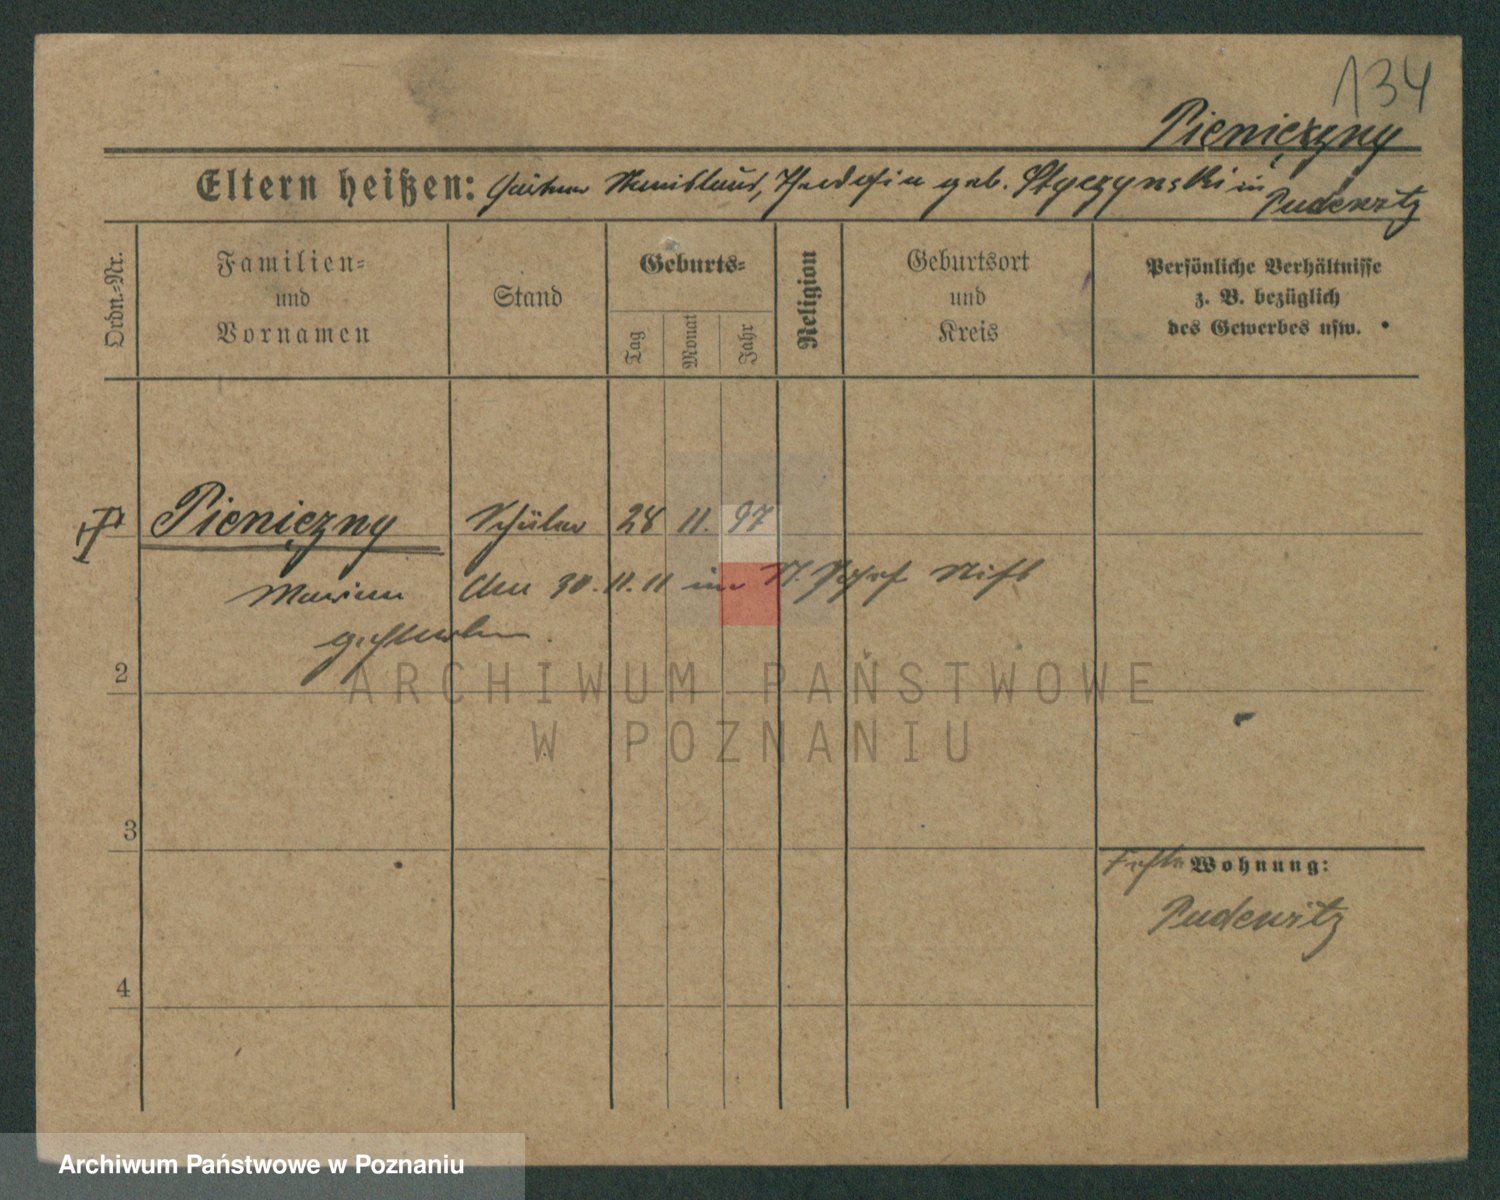 134
Pieniężny
Eltern heißen: Gärtner Stanislaus, Theodosia geb. Styczynski in Pudewitz
Ordn.-Nr.
Familien-
und
Vornamen
Stand
Geburts-
Tag
Monat
Jahr
Religion
Geburtsort
und
Kreis
Persönliche Verhältnisse
z. B. bezüglich
des Gewerbes usw.
Pieniężny Schüler 28 11. 97
Marian Am 30. 11. 11 im St. Josef Stift
gestorben.
2
ARCHIWUM PAŃSTWOWE
W POZNANIU
3
Wohnung:
Pudewitz
4
Archiwum Państwowe w Poznaniu